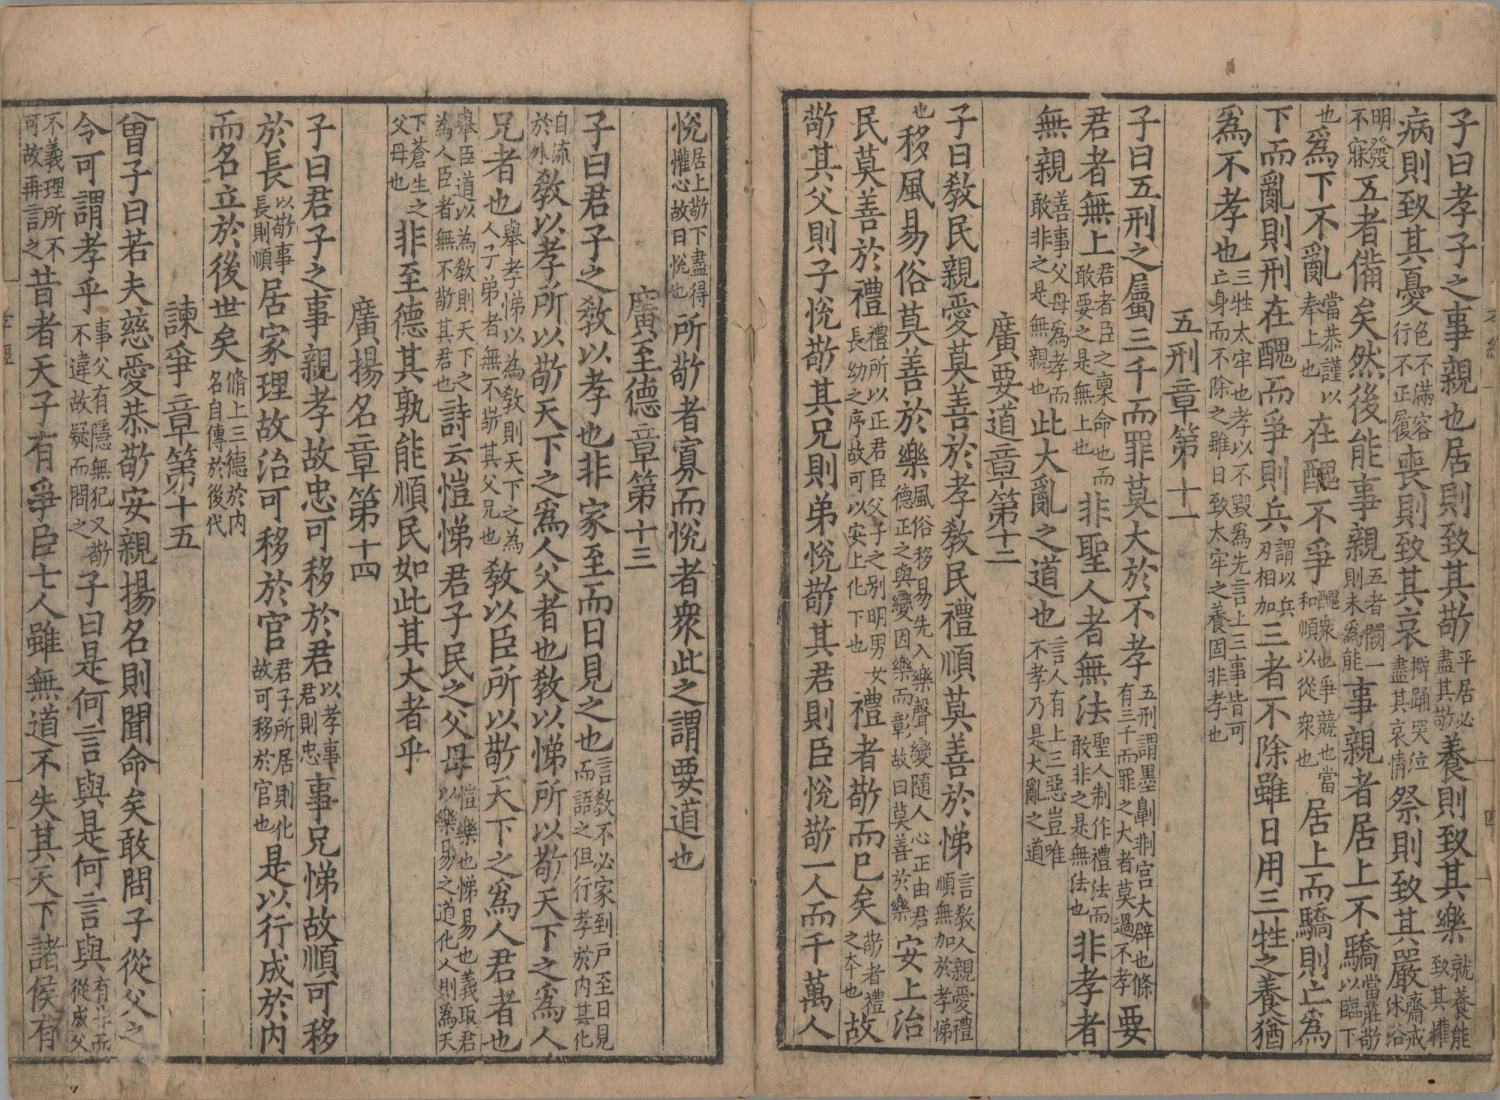 子曰孝子之事親也居則致其敬平居必盡其敬養則致其樂就養能致其懽
病則致其憂色不滿容行不正履喪則致其哀擗踊哭泣盡其哀情祭則致其嚴齋戒沐浴
明發不寐五者備矣然後能事親五者闕一則未為能事親者居上不驕當莊敬以臨下
也爲下不亂當恭謹以奉上也在醜不爭醜衆也爭競也當和順以從衆也居上而驕則亡爲
下而亂則刑在醜而爭則兵謂以兵刃相加三者不除雖日用三牲之養猶
爲不孝也三牲太牢也孝以不毀爲先言上三事皆可亡身而不除之雖日致太牢之養固非孝也
五刑章第十一
子曰五刑之屬三千而罪莫大於不孝五刑謂墨劓剕宮大辟也條有三千而罪之大者莫過不孝要
君者無上君者臣之稟命也而敢要之是無上也非聖人者無法聖人制作禮法而敢非之是無法也非孝者
無親善事父母爲孝而敢非之是無親也此大亂之道也言人有上三惡豈唯不孝乃是大亂之道
廣要道章第十二
子曰敎民親愛莫善於孝敎民禮順莫善於悌言敎人親愛禮順無加於孝悌
也移風易俗莫善於樂風俗移易先入樂聲變隨人心正由君德正之與變因樂而彰故曰莫善於樂安上治
民莫善於禮禮所以正君臣父子之別明男女長幼之序故可以安上化下也禮者敬而已矣敬者禮之本也故
敬其父則子悅敬其兄則弟悅敬其君則臣悅敬一人而千萬人
悅居上敬下盡得懽心故曰悅也所敬者寡而悅者衆此之謂要道也
廣至德章第十三
子曰君子之敎以孝也非家至而日見之也言敎不必家到戶至日見而語之但行孝於內其化
自流於外敎以孝所以敬天下之爲人父者也敎以悌所以敬天下之爲人
兄者也舉孝悌以為敎則天下之為人子弟者無不敬其父兄也敎以臣所以敬天下之爲人君者也
舉臣道以為敎則天下之為人臣者無不敬其君也詩云愷悌君子民之父母愷樂也悌易也義取君以樂易之道化人則為天
下蒼生之父母也非至德其孰能順民如此其大者乎
廣揚名章第十四
子曰君子之事親孝故忠可移於君以孝事君則忠事兄悌故順可移
於長以敬事長則順居家理故治可移於官君子所居則化故可移於官也是以行成於內
而名立於後世矣脩上三德於內名自傳於後代
諫爭章第十五
曾子曰若夫慈愛恭敬安親揚名則聞命矣敢問子從父之
令可謂孝乎事父有隱無犯又敬不違故疑而問之子曰是何言與是何言與有非而從成父
不義理所不可故再言之昔者天子有爭臣七人雖無道不失其天下諸侯有